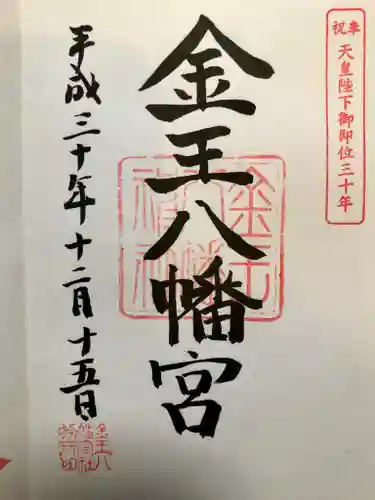 奉祝 天皇陛下御即位三十年
金王八幡宮
平成三十年十二月十五日